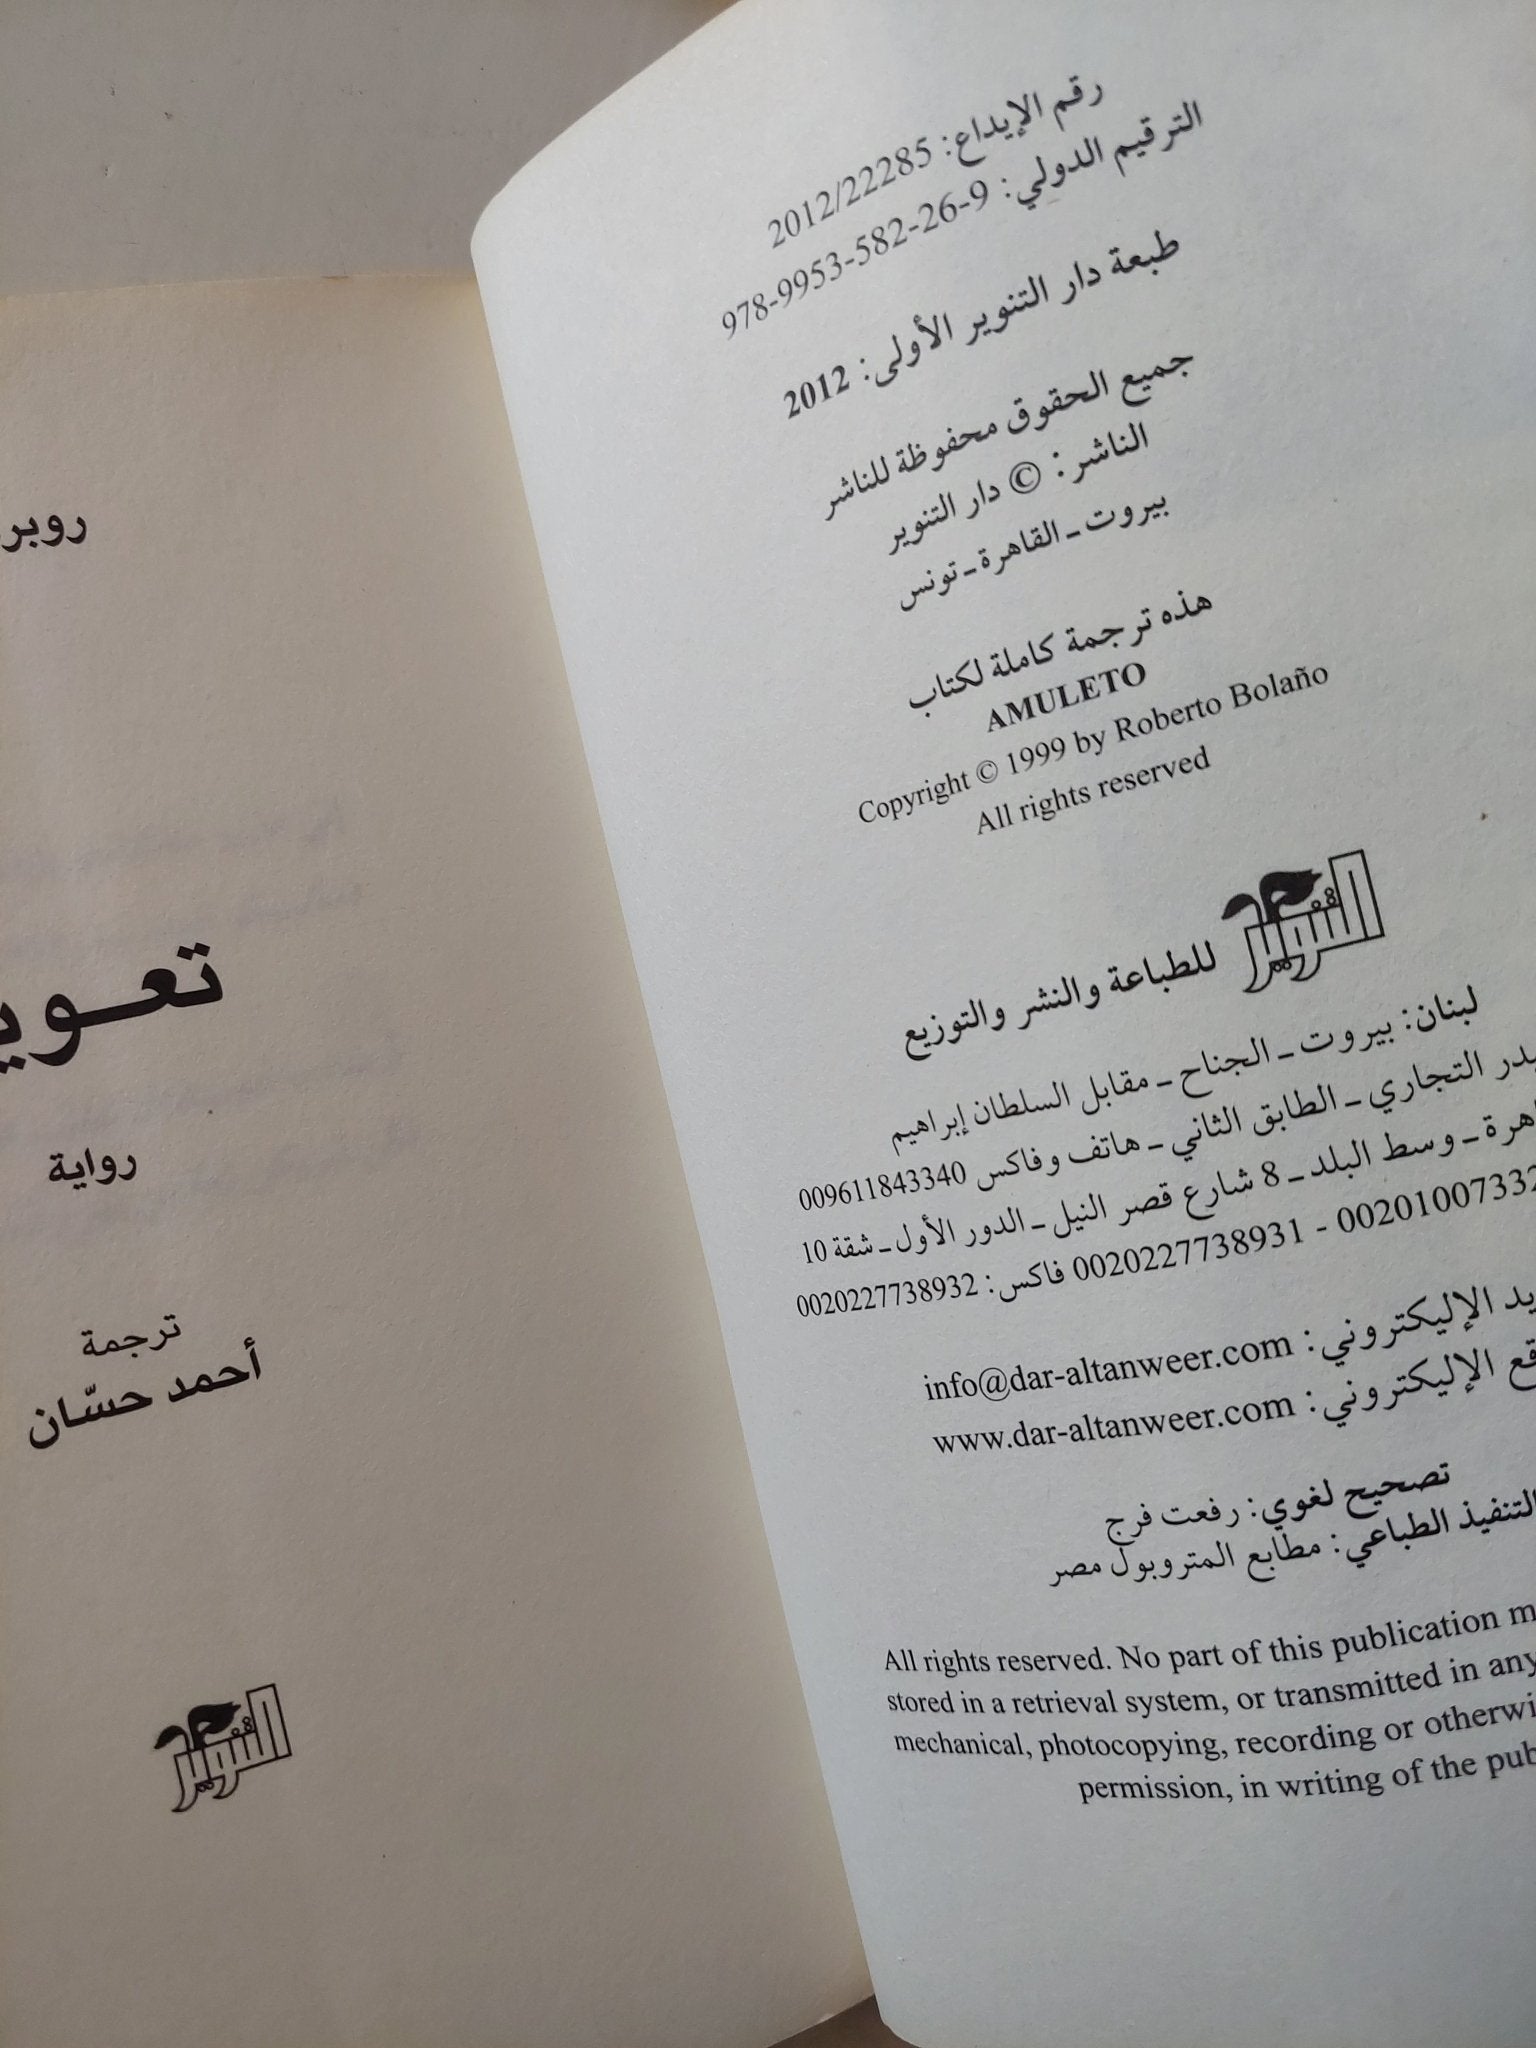 رقم الإيداع: 2012/22285
الترقيم الدولي: 9-26-582-9953-978
طبعة دار التنوير الأولى: 2012
جميع الحقوق محفوظة للناشر
الناشر: © دار التنوير
بيروت ـ القاهرة ـ تونس
هذه ترجمة كاملة لكتاب
AMULETO
Copyright © 1999 by Roberto Bolaño
All rights reserved
التنوير للطباعة والنشر والتوزيع
لبنان: بيروت ـ الجناح ـ مقابل السلطان إبراهيم
التجاري ـ الطابق الثاني ـ هاتف وفاكس 009611843340
ـ وسط البلد ـ 8 شارع قصر النيل ـ الدور الأول ـ شقة 10
0020227738931 فاكس: 0020227738932
الإليكتروني: info@dar-altanweer.com
الإليكتروني: www.dar-altanweer.com
تصحيح لغوي: رفعت فرج
التنفيذ الطباعي: مطابع المتروبول مصر
All rights reserved. No part of this publication
stored in a retrieval system, or transmitted in any
mechanical, photocopying, recording or
permission, in writing of the
رواية
ترجمة
أحمد حسّان
التنوير